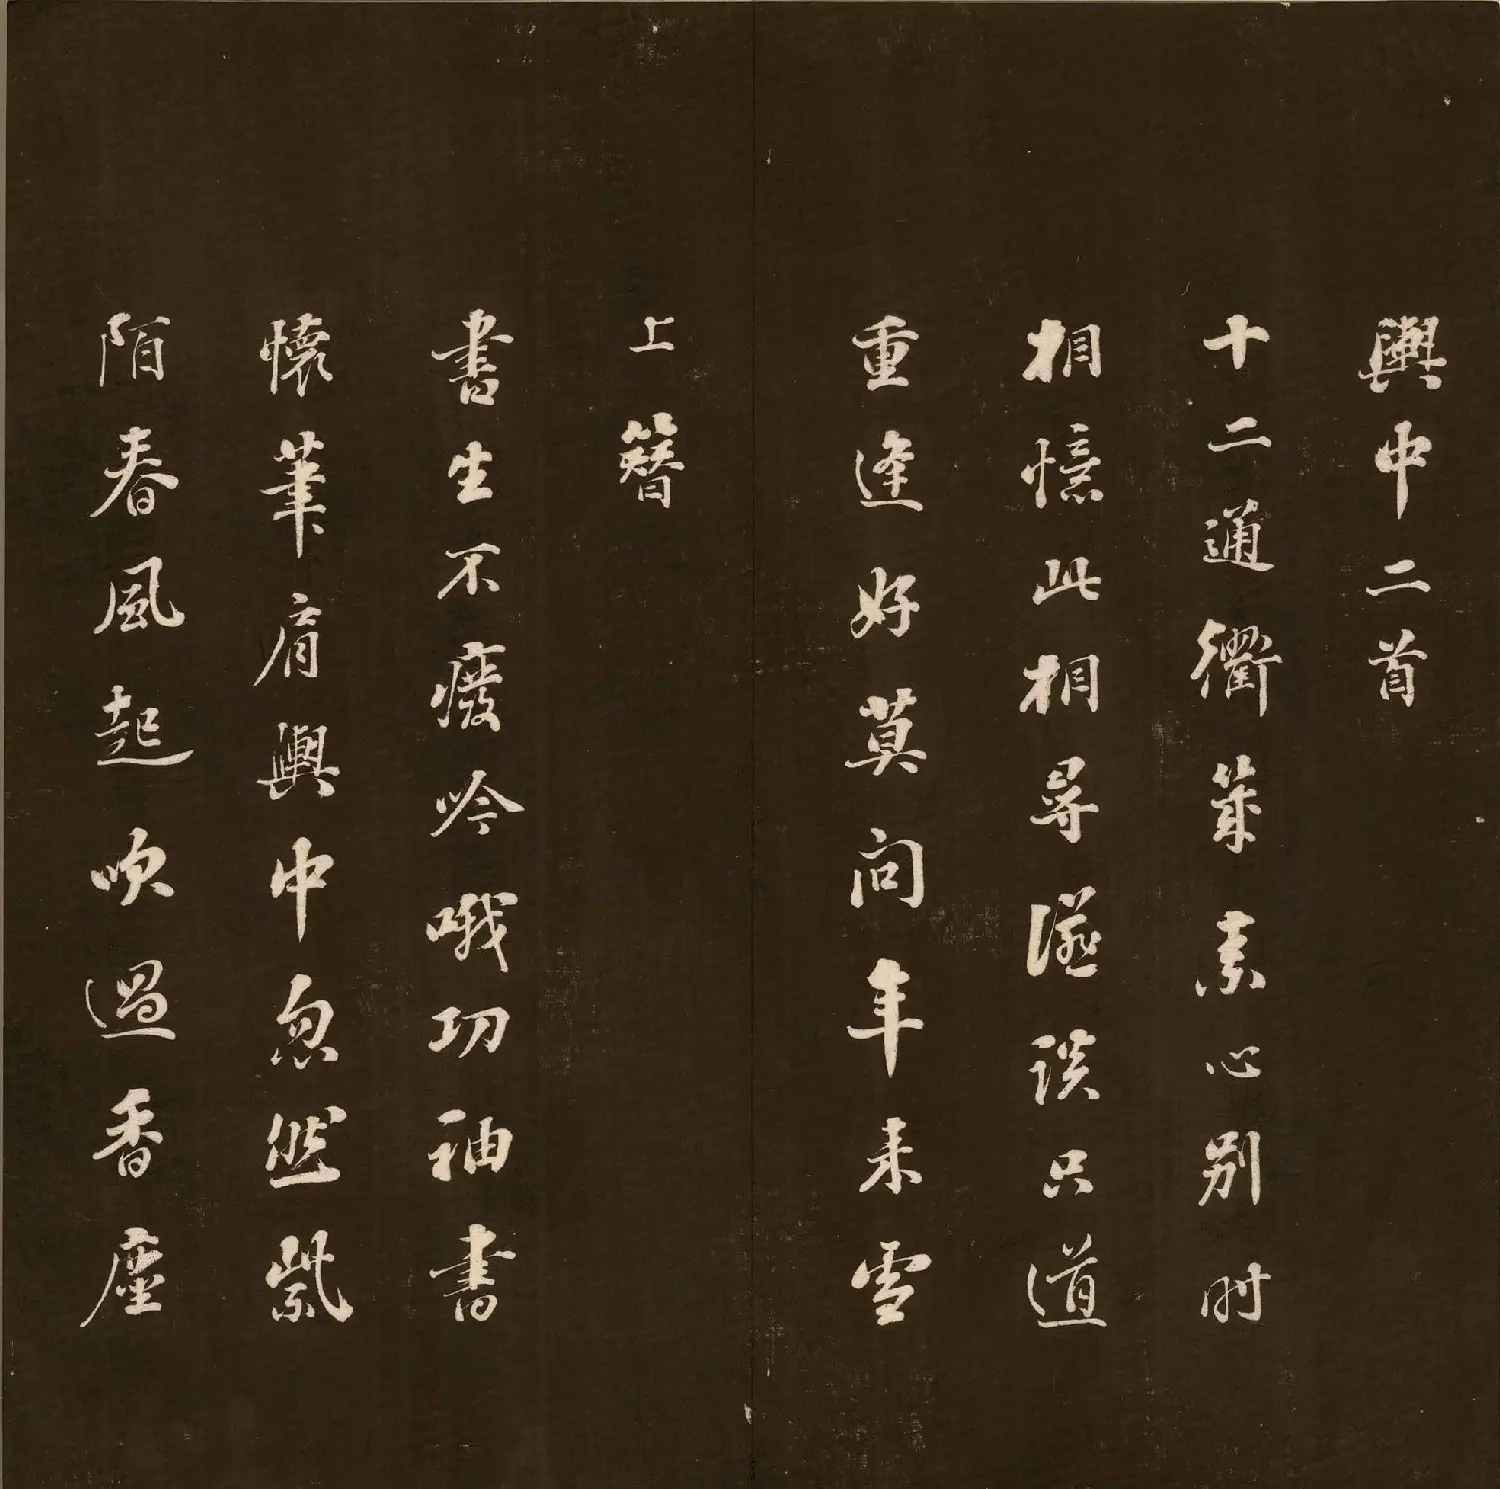 輿中二首
十二通衢幾素心別時
相憶此相尋讌談只道
重逢好莫問年來雪
上簪
書生不癈吟哦功袖書
懷筆肩輿中忽然紫
陌春風起吹過香塵